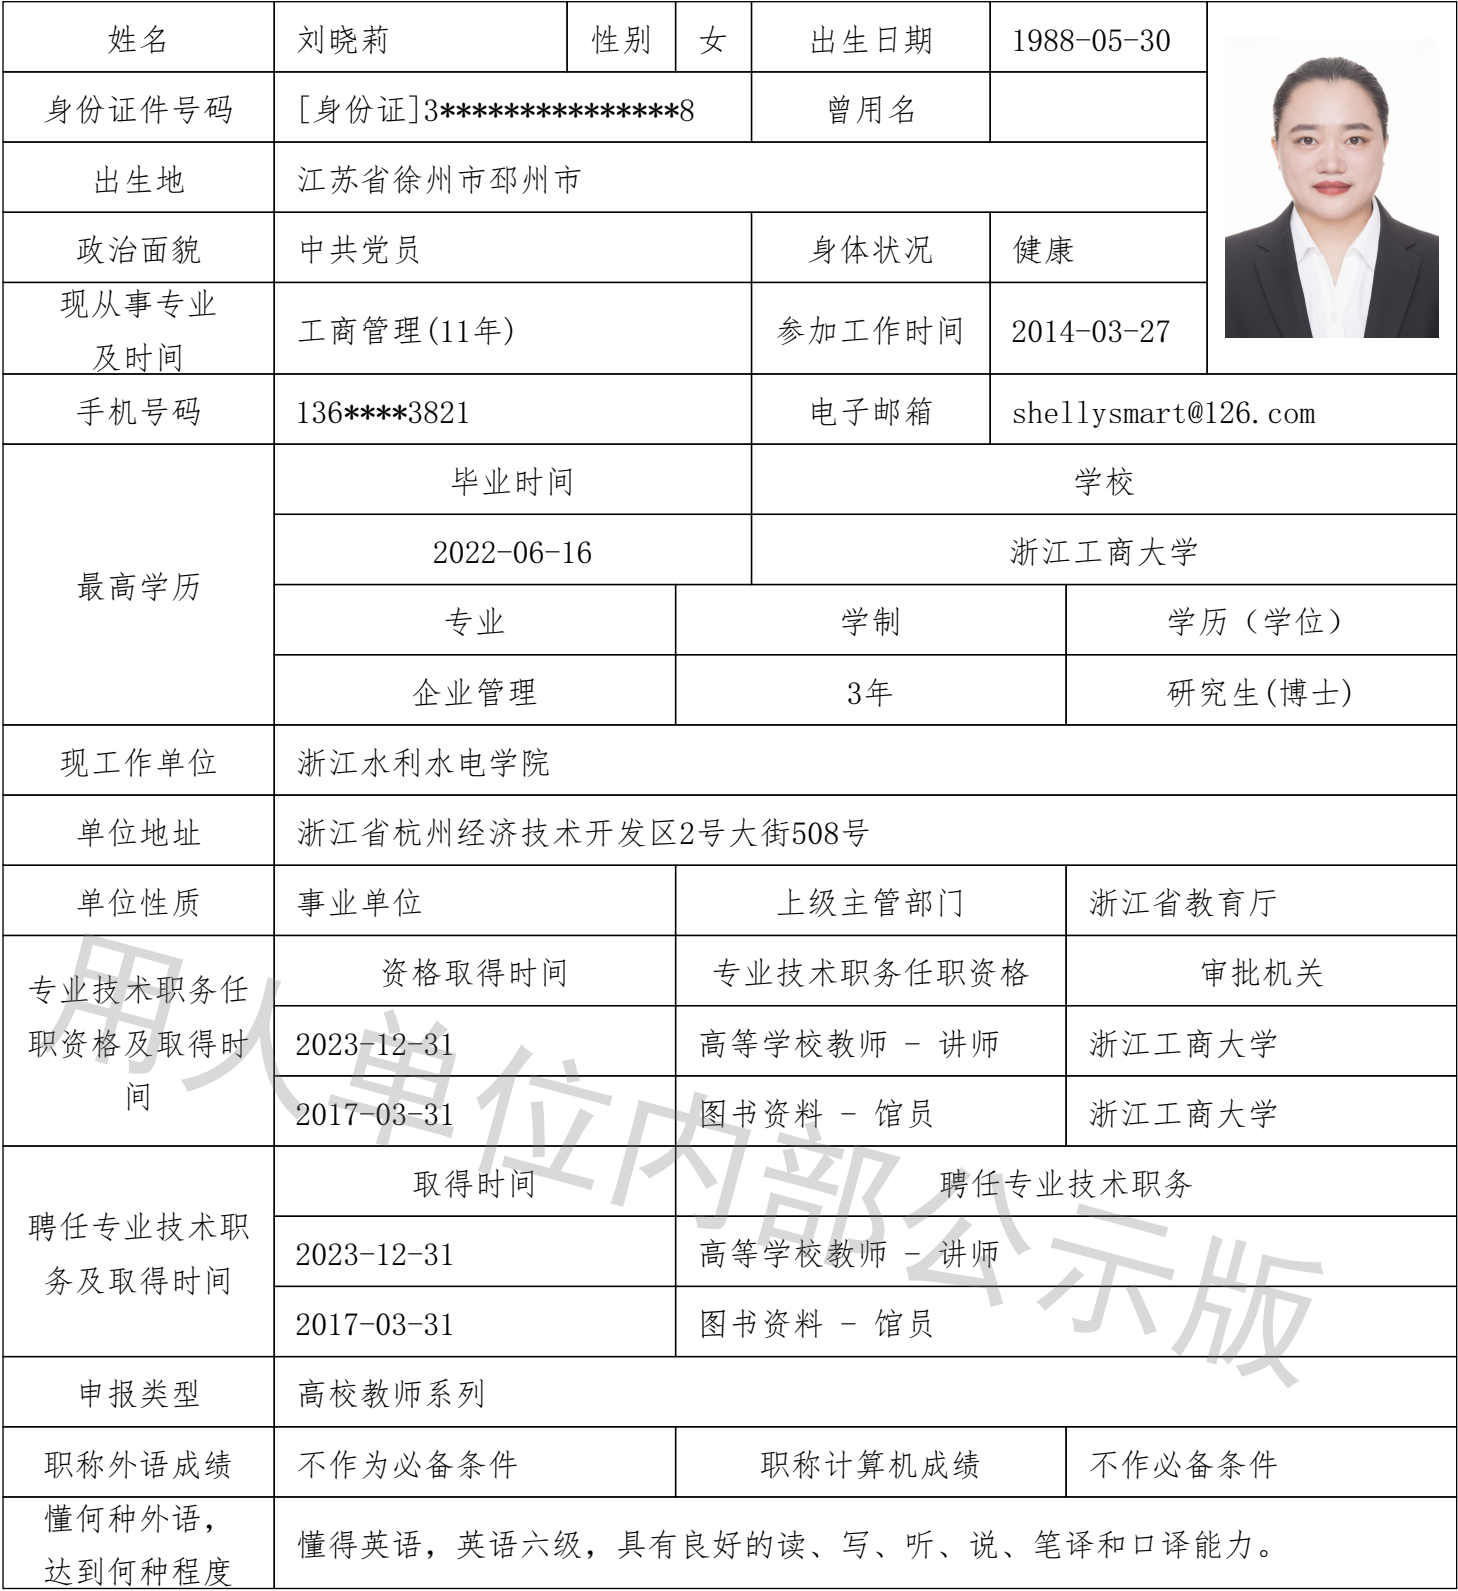 姓名 刘晓莉 性别 女 出生日期 1988-05-30
身份证件号码 [身份证]3***************8 曾用名
出生地 江苏省徐州市邳州市
政治面貌 中共党员 身体状况 健康
现从事专业
及时间 工商管理(11年) 参加工作时间 2014-03-27
手机号码 136****3821 电子邮箱 shellysmart@126.com
最高学历
毕业时间 学校
2022-06-16 浙江工商大学
专业 学制 学历（学位）
企业管理 3年 研究生(博士)
现工作单位 浙江水利水电学院
单位地址 浙江省杭州经济技术开发区2号大街508号
单位性质 事业单位 上级主管部门 浙江省教育厅
专业技术职务任
职资格及取得时
间
资格取得时间 专业技术职务任职资格 审批机关
2023-12-31 高等学校教师 - 讲师 浙江工商大学
2017-03-31 图书资料 - 馆员 浙江工商大学
聘任专业技术职
务及取得时间
取得时间 聘任专业技术职务
2023-12-31 高等学校教师 - 讲师
2017-03-31 图书资料 - 馆员
申报类型 高校教师系列
职称外语成绩 不作为必备条件 职称计算机成绩 不作必备条件
懂何种外语，
达到何种程度 懂得英语，英语六级，具有良好的读、写、听、说、笔译和口译能力。
用人单位内部公示版